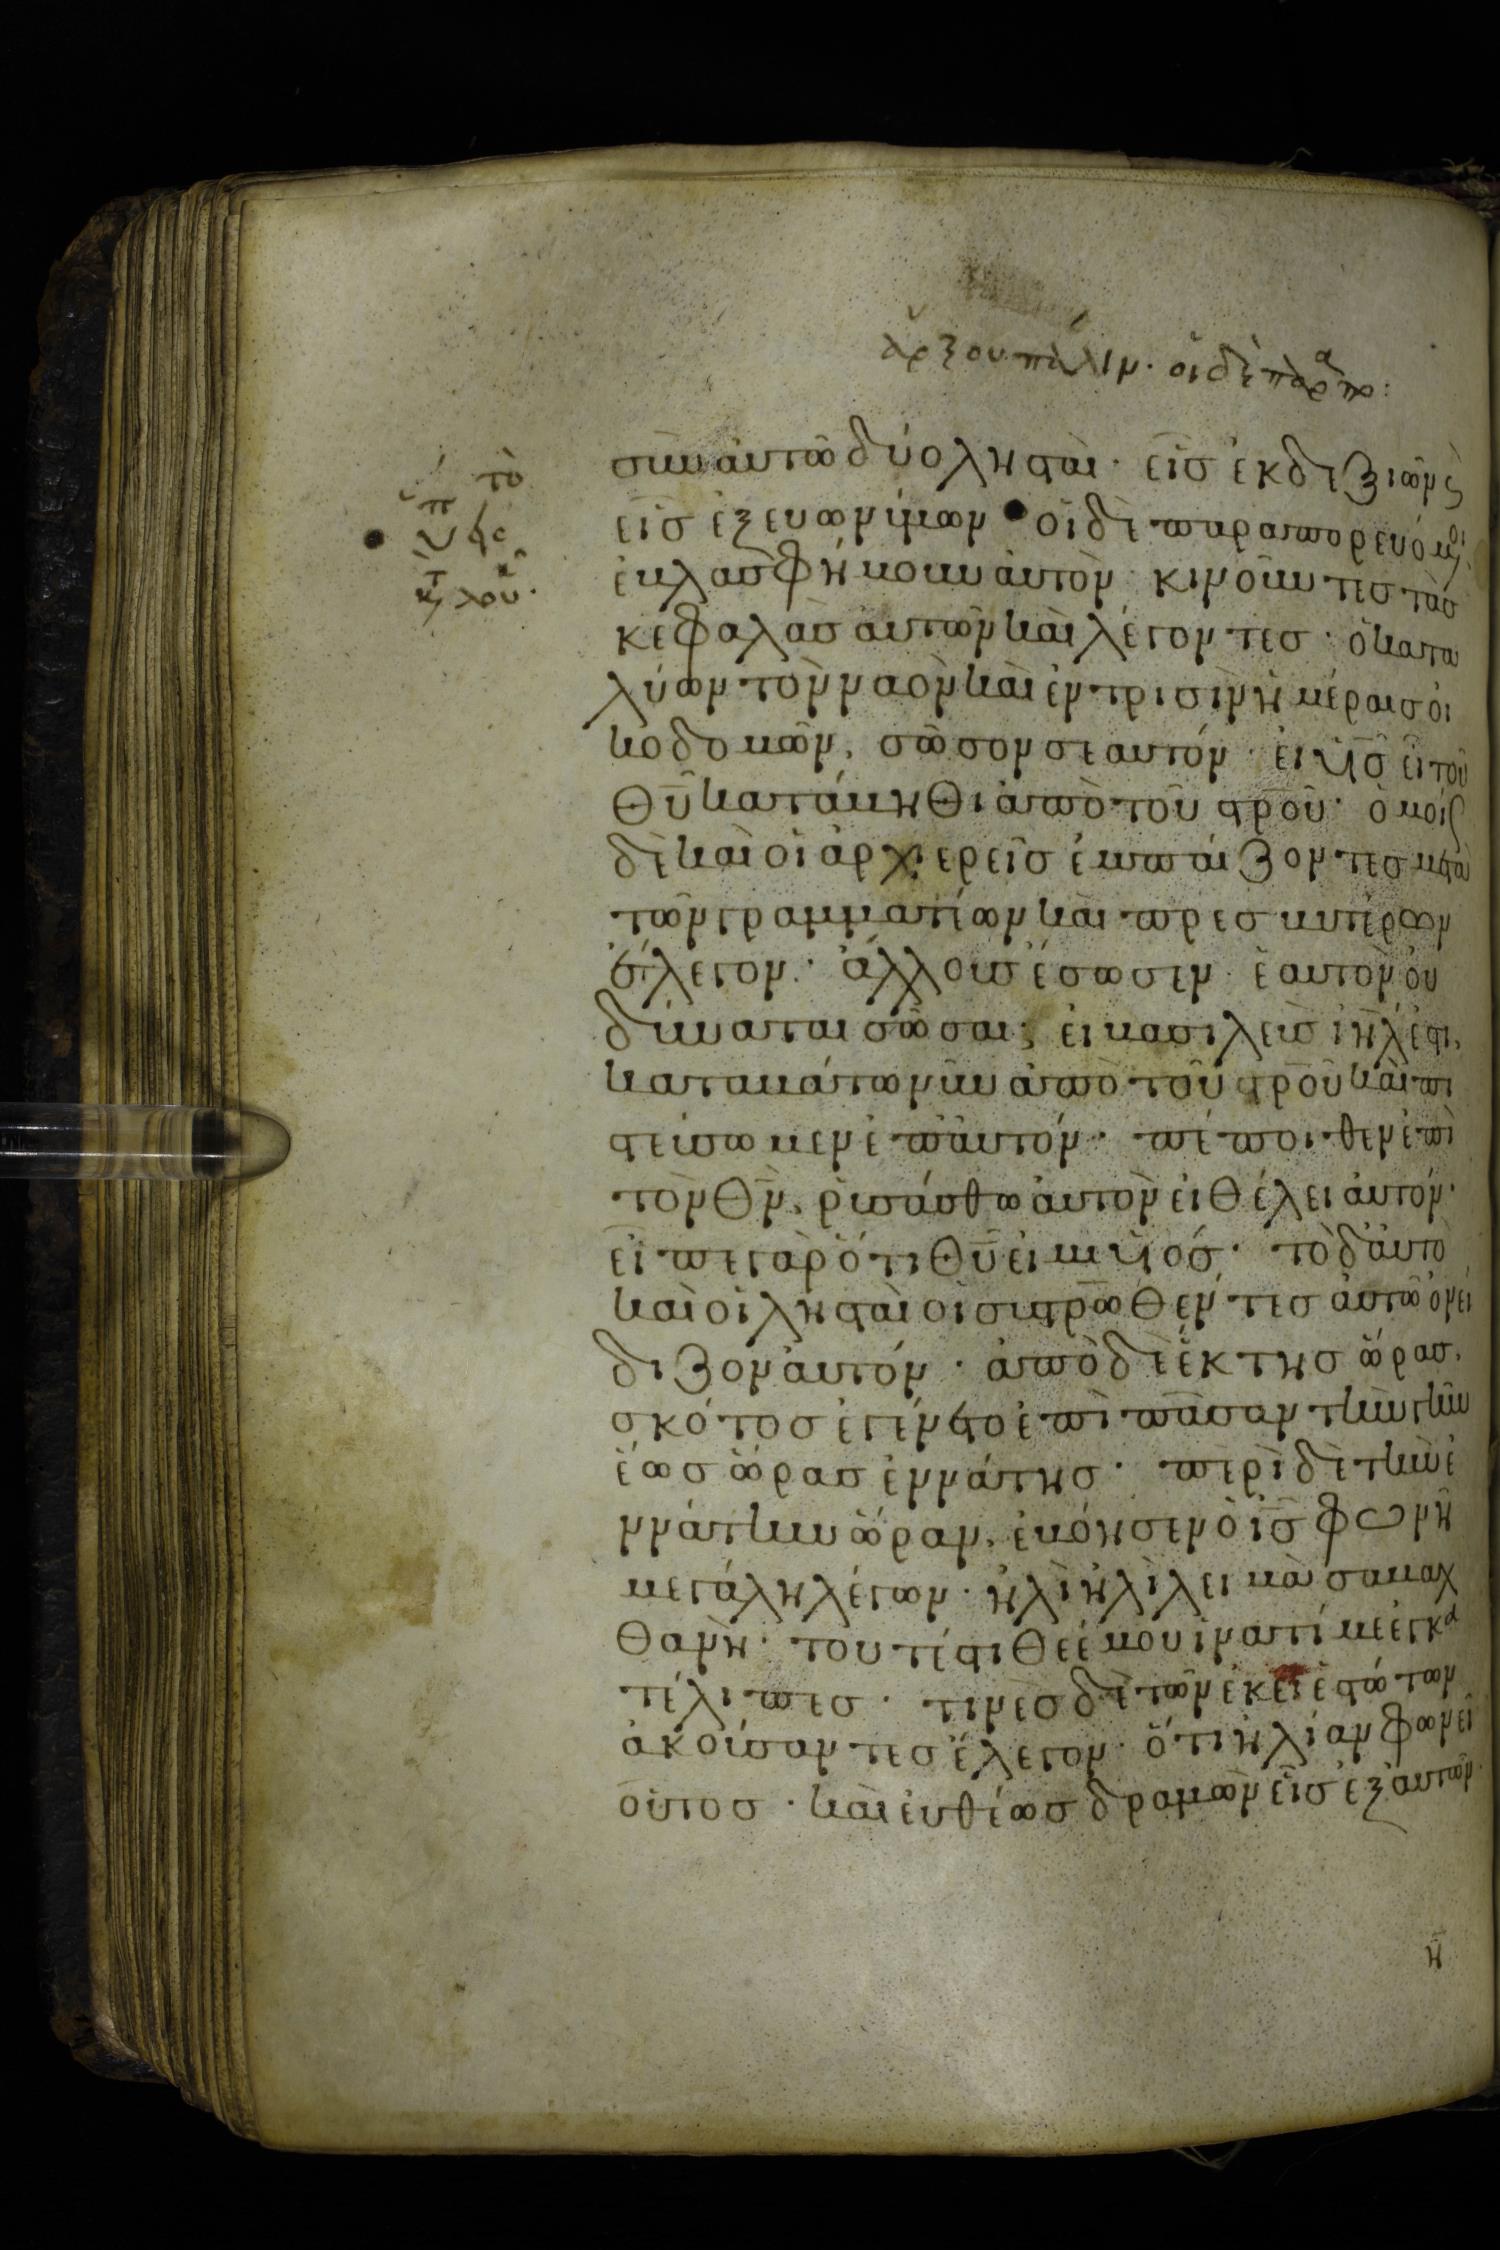 ἄρξου πάλιν· οἱ δὲ παραπρ:
τὸ
ὕπ
κ τ λου·
σὺν αὐτῶ δύο λησταὶ· εἷς ἐκ δεξιῶν κ
εἷς ἐξ εὐωνύμων οἱ δὲ παραπορευόμενοι
ἐβλασφήμουν αὐτὸν κινοῦντες τὰς
κεφαλὰς αὐτῶν καὶ λέγοντες· ὁ κατα
λύων τὸν ναὸν καὶ ἐν τρισὶν ἡμέραις οἰ
κοδομῶν, σῶσον σεαυτόν· εἰ υἱς εἶ τοῦ
θυ κατάβηθι ἀπὸ τοῦ στρου· ὁμοίως
δὲ καὶ οἱ ἀρχιερεῖς ἐμπαίζοντες μετὰ
τῶν γραμματέων καὶ πρεσβυτέρων
ἔλεγον· ἄλλους ἔσωσεν ἑαυτὸν οὐ
δύναται σῶσαι; εἰ βασιλεὺς ιηλ ἐστι,
καταβάτω νῦν ἀπὸ τοῦ στρου καὶ πι
στεύσωμεν ἐπ αὐτόν· πέποιθεν ἐπὶ
τὸν θν, ῥυσάσθω αὐτὸν εἰ θέλει αὐτόν·
εἶπε γὰρ ὅτι θυ εἰμι υἱός· τὸ δ αὐτὸ
καὶ οἱ λησταὶ οἱ συστρωθέντες αὐτῶ ὀνεί
διζον αὐτόν· ἀπὸ δὲ ἕκτης ὥρας,
σκότος ἐγένετο ἐπὶ πᾶσαν τὴν γῆν
ἕως ὥρας ἐννάτης· περὶ δὲ τὴν ἐ
ννάτην ὥραν, ἐβόησεν ὁ ις φωνῆ
μεγάλη λέγων· ἠλὶ ἠλὶ λειμὰ σαβαχ
θανὴ· τουτέστι θεέ μου ἱνατί με ἐγκα
τέλιπες· τινὲς δὲ τῶν ἐκεῖ ἑστώτων
ἀκούσαντες ἔλεγον· ὅτι ἠλίαν φωνεῖ
οὗτος· καὶ εὐθέως δραμὼν εἷς ἐξ αὐτῶν·
η